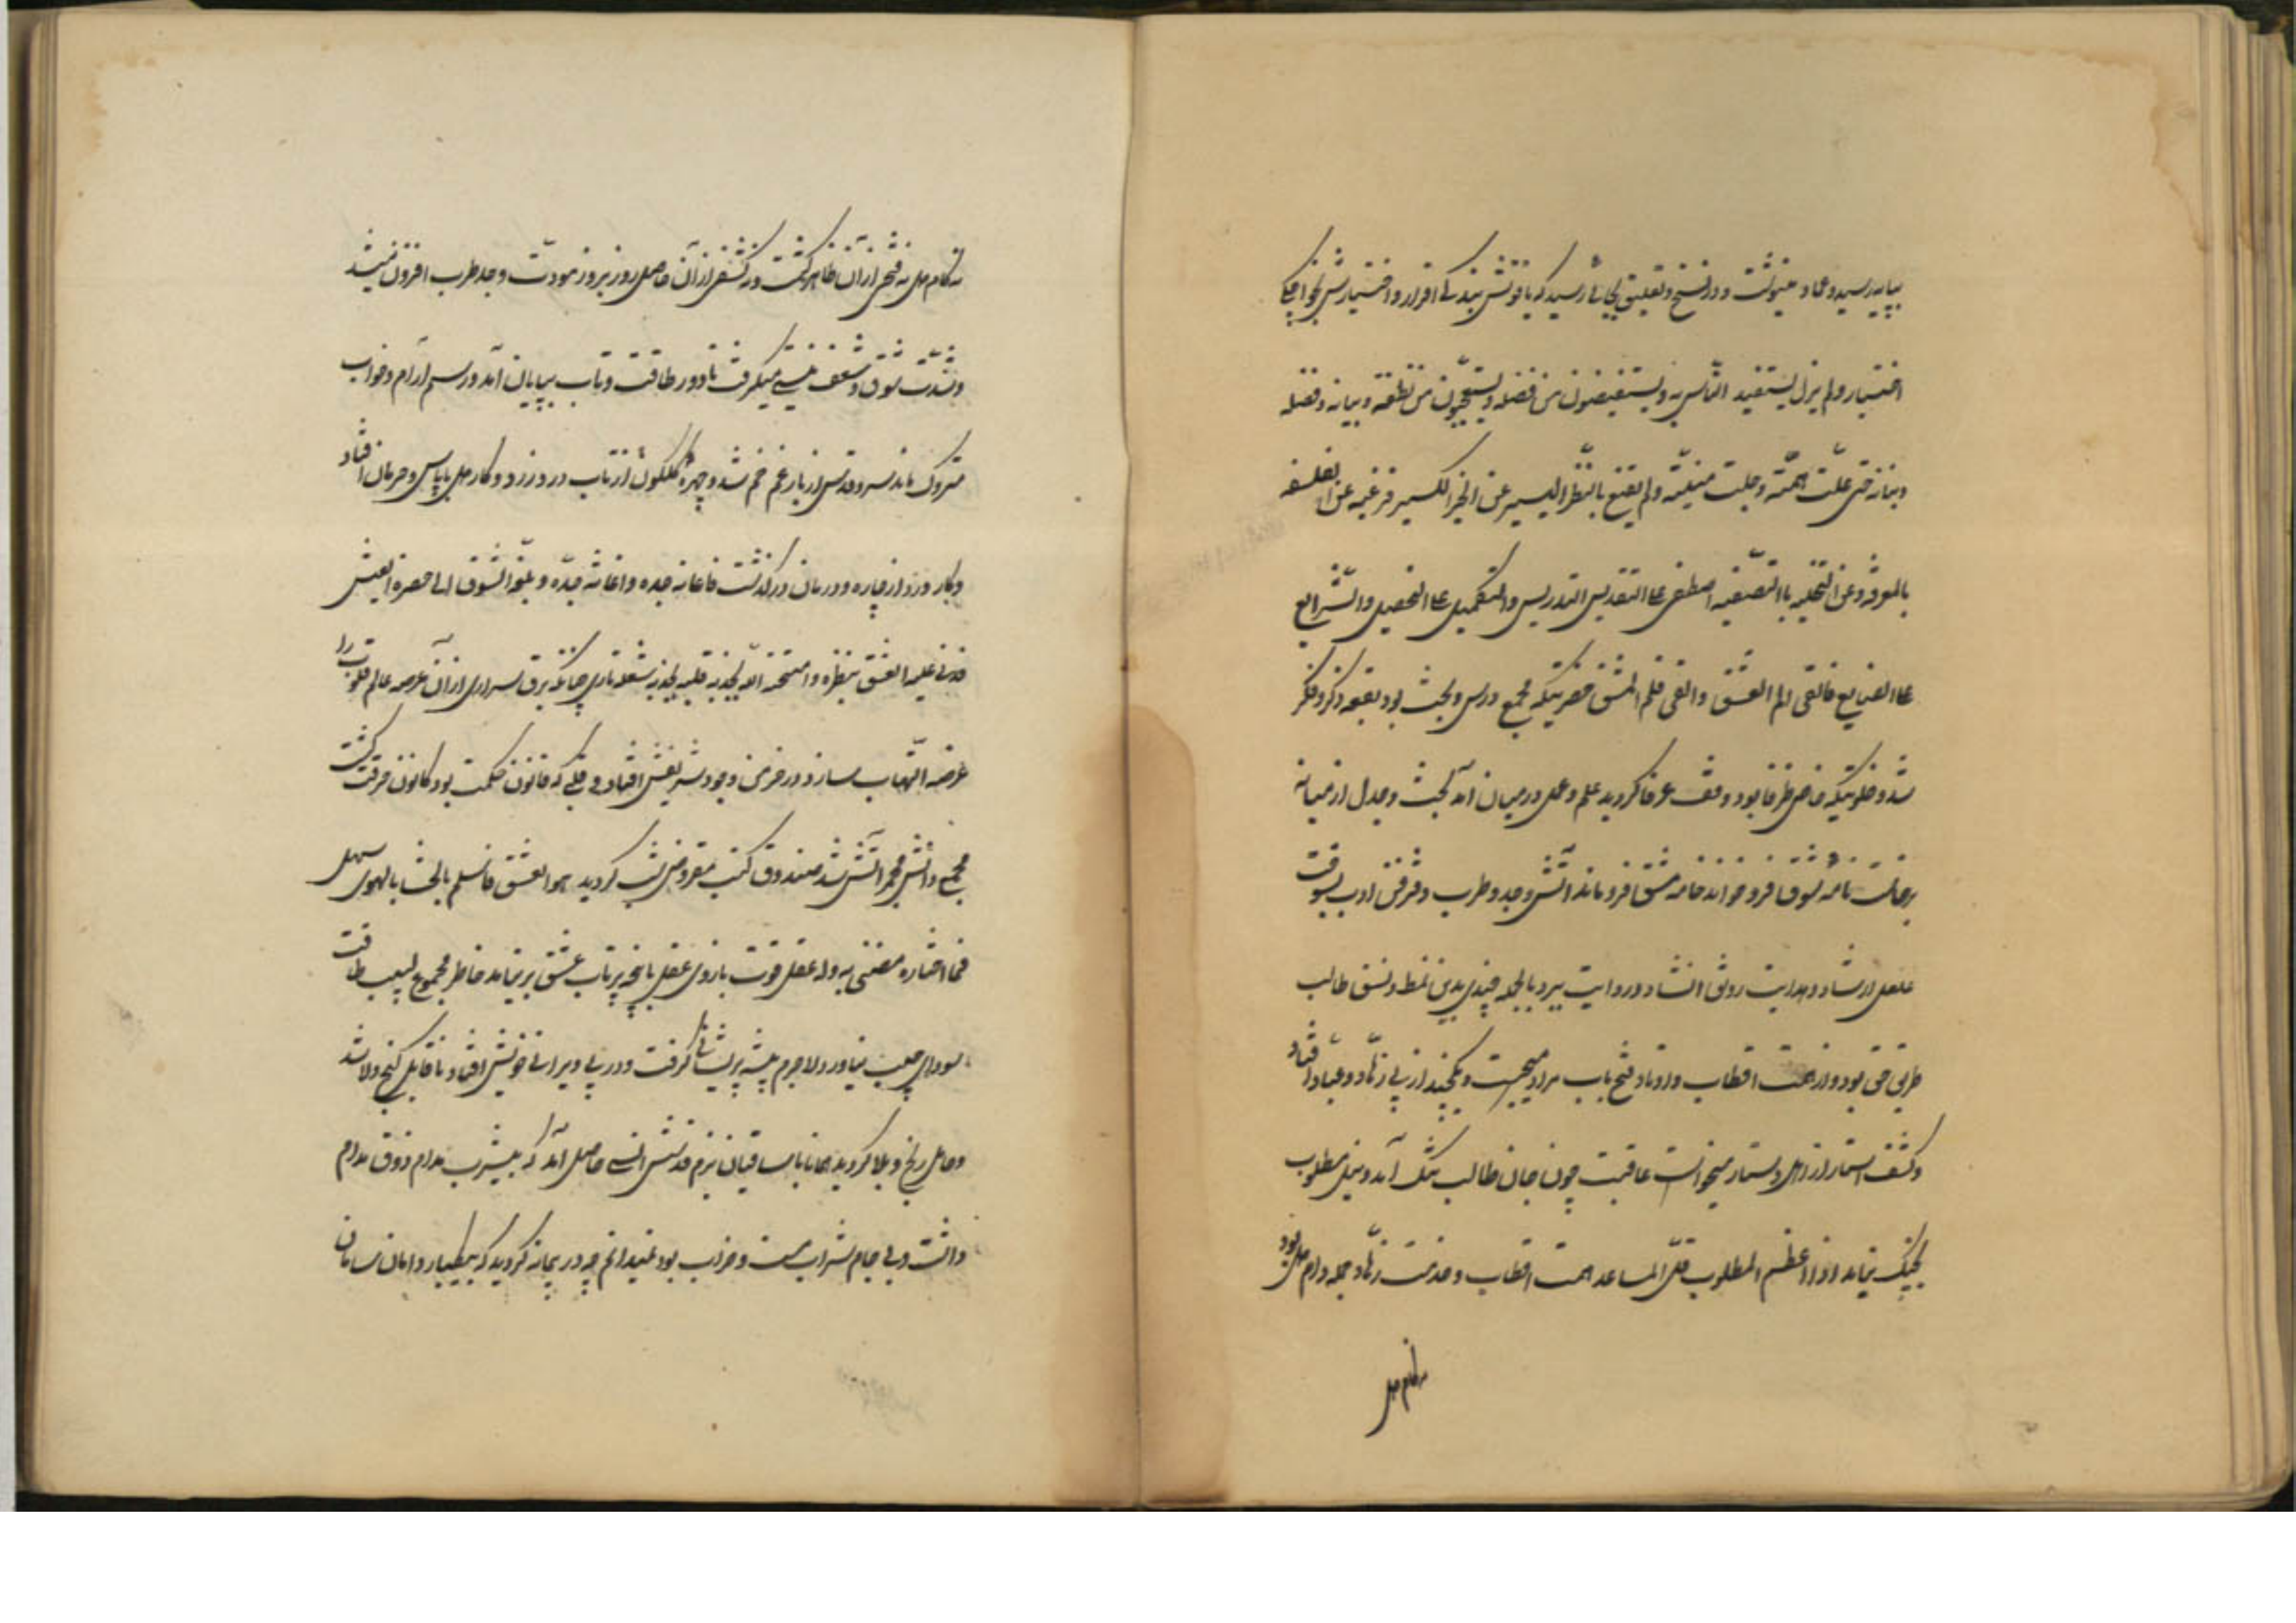 بپایه رسید و عماد مینوشت و در نسخ و تعلیق بجائی رسید که یاقوتش ببندگی اقرار و اختیارش بخواجگی
اختیار و لم یزل یستفید الناس به و یستفیضون من فضله و یستعجبون من نطقه و بیانه و فضله
و بنانه حتی علّت همّته و جلت منیّته و لم یقنع بالنظر الیسیر عن الخیر الکسیر فرغبه عن الفلسفه
بالمعرفه و عن التحلیه باالتصفیه اصطفی علی التقدیس التدریس و التکمیل علی التحصیل و الشرایع
علی الصنایع فالقی الم العشق و القی قلم المشق حضرتیکه مجمع درس و بحث بود بقعه ذکر و فکر
شد و خلوتیکه خاص ظرفا بود وقف عرفا کردید علم و عمل در میان آمد بحث و جدل از میانه
برخاست نامه شوق فرو خواند خامه مشق فرو ماند آتش وجد و طرب دفتر فن ادب بسوخت
عقل ارشاد و هدایت رونق انشاد و روایت ببرد بالجمله چندی بدین نمط و نسق طالب
طریق حق بود و از همت اقطاب و اوتاد فتح باب مراد میجست و یکچند از پی زهّاد و عباد افتاد
و کشف استار از اهل دستار میخواست عاقبت چون جان طالب بتنک آمد و نیل مطلوب
بچنک نیامد و اذا عظم المطلوب قلّ المساعد همت اقطاب و خدمت زهّاد جمله دام جهل بود
نه کام دل
نه کام دل نه فتحی از آن ظاهر کشت و نه کشفی از آن حاصل روز بروز مودّت وجد طرب افزون میشد
و شدّت شوق و شعف بیشی میکرفت تا دور طاقت و تاب بپایان آمد و رسم آرام و خواب
متروک ماند سرو قدش از بار غم خم شد و چهره کلکون از تاب درد زرد و کار دل با یاس و حرمان افتاد
و کار درد از چاره و درمان در کذشت فاعانه جده و اغاثه جدّه و بلغ الشوق الی حضرة العیش
فدنی علیه العشق بنظره و امتحنه الله بجذبه قلبه بجذبه شعله ناری چنانکه برق سراری از آن عرصه عالم قلوب را
عرضه التهاب سازد در خرمن وجود شریفش افتاد دلی که قانون حکمت بود کانون حرقت کشت
مجمع دانش مجمر آتش شد صندوق کتب مقروض تب کردید هو العشق فاسلم بالحشا بالهوی سهل
فما اختاره مضنی به و له عقل قوت بازوی عقل با پنجه پرتاب عشق بر نیامد خاطر مجموع لبیب طاقت
سودای حبیب نیاورد لاجرم پیشه پریشانی کرفت و در پی ویرانی خویش افتاد تا قابل کنج ولا شد
و حامل رنج و بلا کردید همانا با ساقیان بزم قدسش انسی حاصل آمد که بیشرب مدام ذوق مدام
داشت و بی جام شراب مست و خراب بود نمیدانم چه در پیمانه کردید که بیکبار دامان سامان